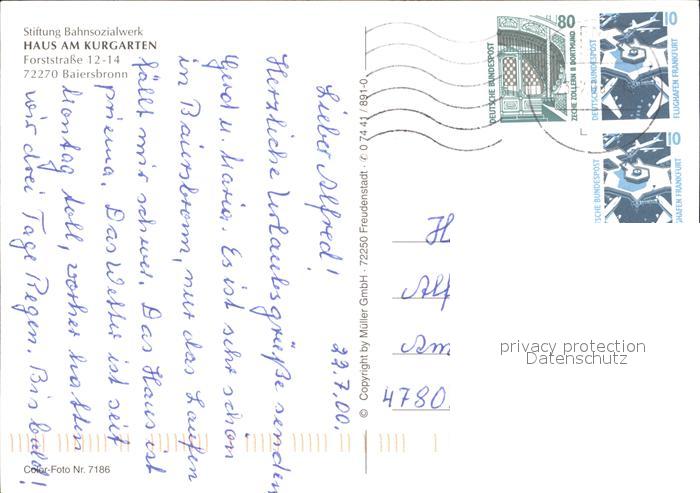 Stiftung Bahnsozialwerk
HAUS AM KURGARTEN
Forststraße 12-14
72270 Baiersbronn
29.7.00.
Lieber Alfred!
Herzliche Urlaubsgrüße senden
Gud u. Maria. Es ist sehr schön
in Baiersbronn, nur das Laufen
fällt mir schwer. Das Haus ist
prima. Das Wetter ist seit
Montag toll, vorher hatten
wir drei Tage Regen. Bis bald!
Color-Foto Nr. 7186
© Copyright by Müller GmbH · 72250 Freudenstadt · ✆ 0 74 41 / 891-0
DEUTSCHE BUNDESPOST
80
ZECHE ZOLLERN II DORTMUND
DEUTSCHE BUNDESPOST
10
FLUGHAFEN FRANKFURT
TSCHE BUNDESPOST
10
GHAFEN FRANKFURT
H
Alf
Am
4780
privacy protection
Datenschutz